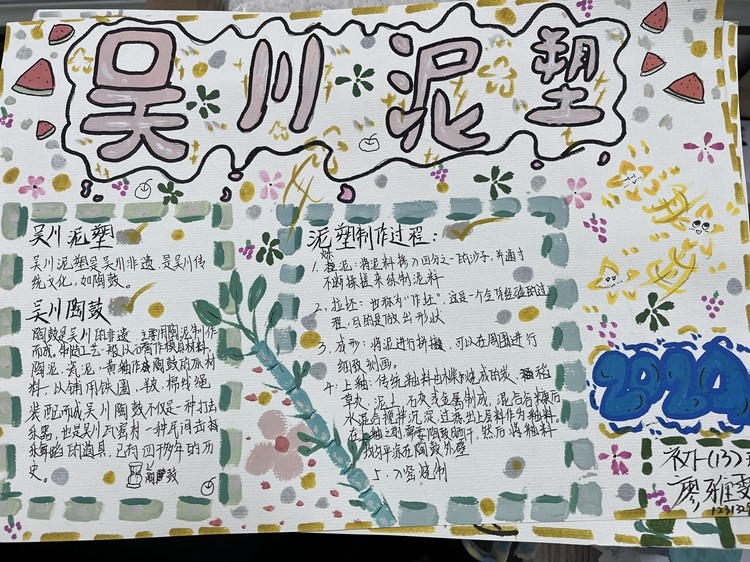 吴川泥塑
吴川泥塑
吴川泥塑是吴川非遗,是吴川传
统文化,如陶鼓。
吴川陶鼓
陶鼓是吴川的非遗 主要用陶泥制作
而成,制造工艺一般以石膏作模具材料,
陶泥、瓷泥、黄釉作为陶鼓的原材
料,以铺用铁圆、鼓、棉线绳
装配而成吴川陶鼓不仅是一种打击
乐器,也是吴川瓦窑村一种民间击鼓
乐舞蹈的道具,已有四千多年的历
史。
陶鼓
泥塑制作过程:
1. 炼泥:将泥料掺入四分之一的沙子,并通过
不断揉搓来练制泥料
2. 拉坯:也称为"作坯",这是一个全凭经验的过
程,目的是做出形状
3. 成形:将泥进行拼接,可以在周围进行
细致刻画。
4. 上釉:传统釉料由水稻烧成的炭、
草灰、泥土、石灰及金属制成,混合后与糠后
水混合搅拌沉淀,过滤出上层料作为釉料。
在上釉之前需要陶鼓晒干,然后将釉料
均匀平涂在陶鼓外壁
5. 入窑烧制
2020
初一(13)
廖雅